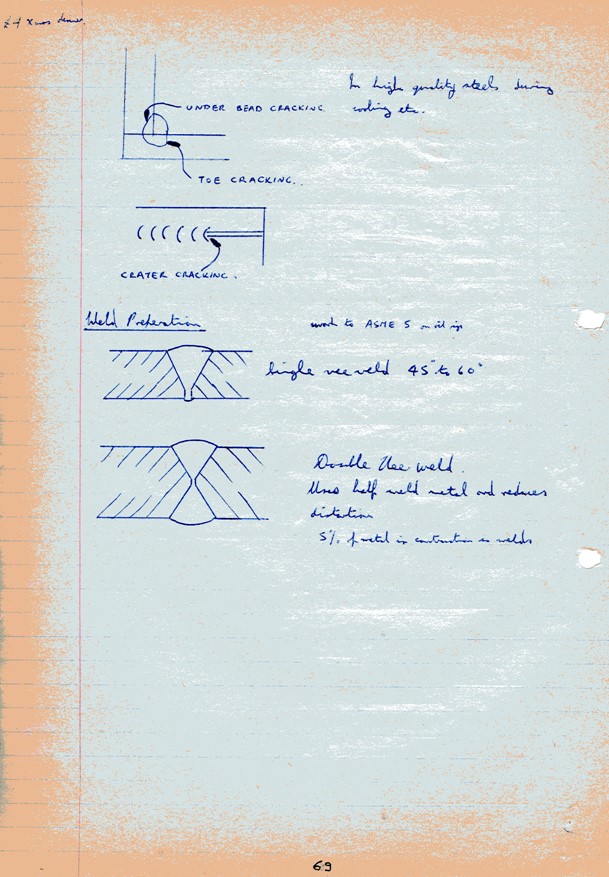 £4 Xmas dinner.
In high quality steels during
cooling etc.
UNDER BEAD CRACKING
TOE CRACKING.
CRATER CRACKING.
Weld Preperation
work to ASME 5 on oil rigs
Single vee weld 45° to 60°
Double Vee weld.
Uses half weld metal and reduces
distortion
5% of metal in contruction is welds
69